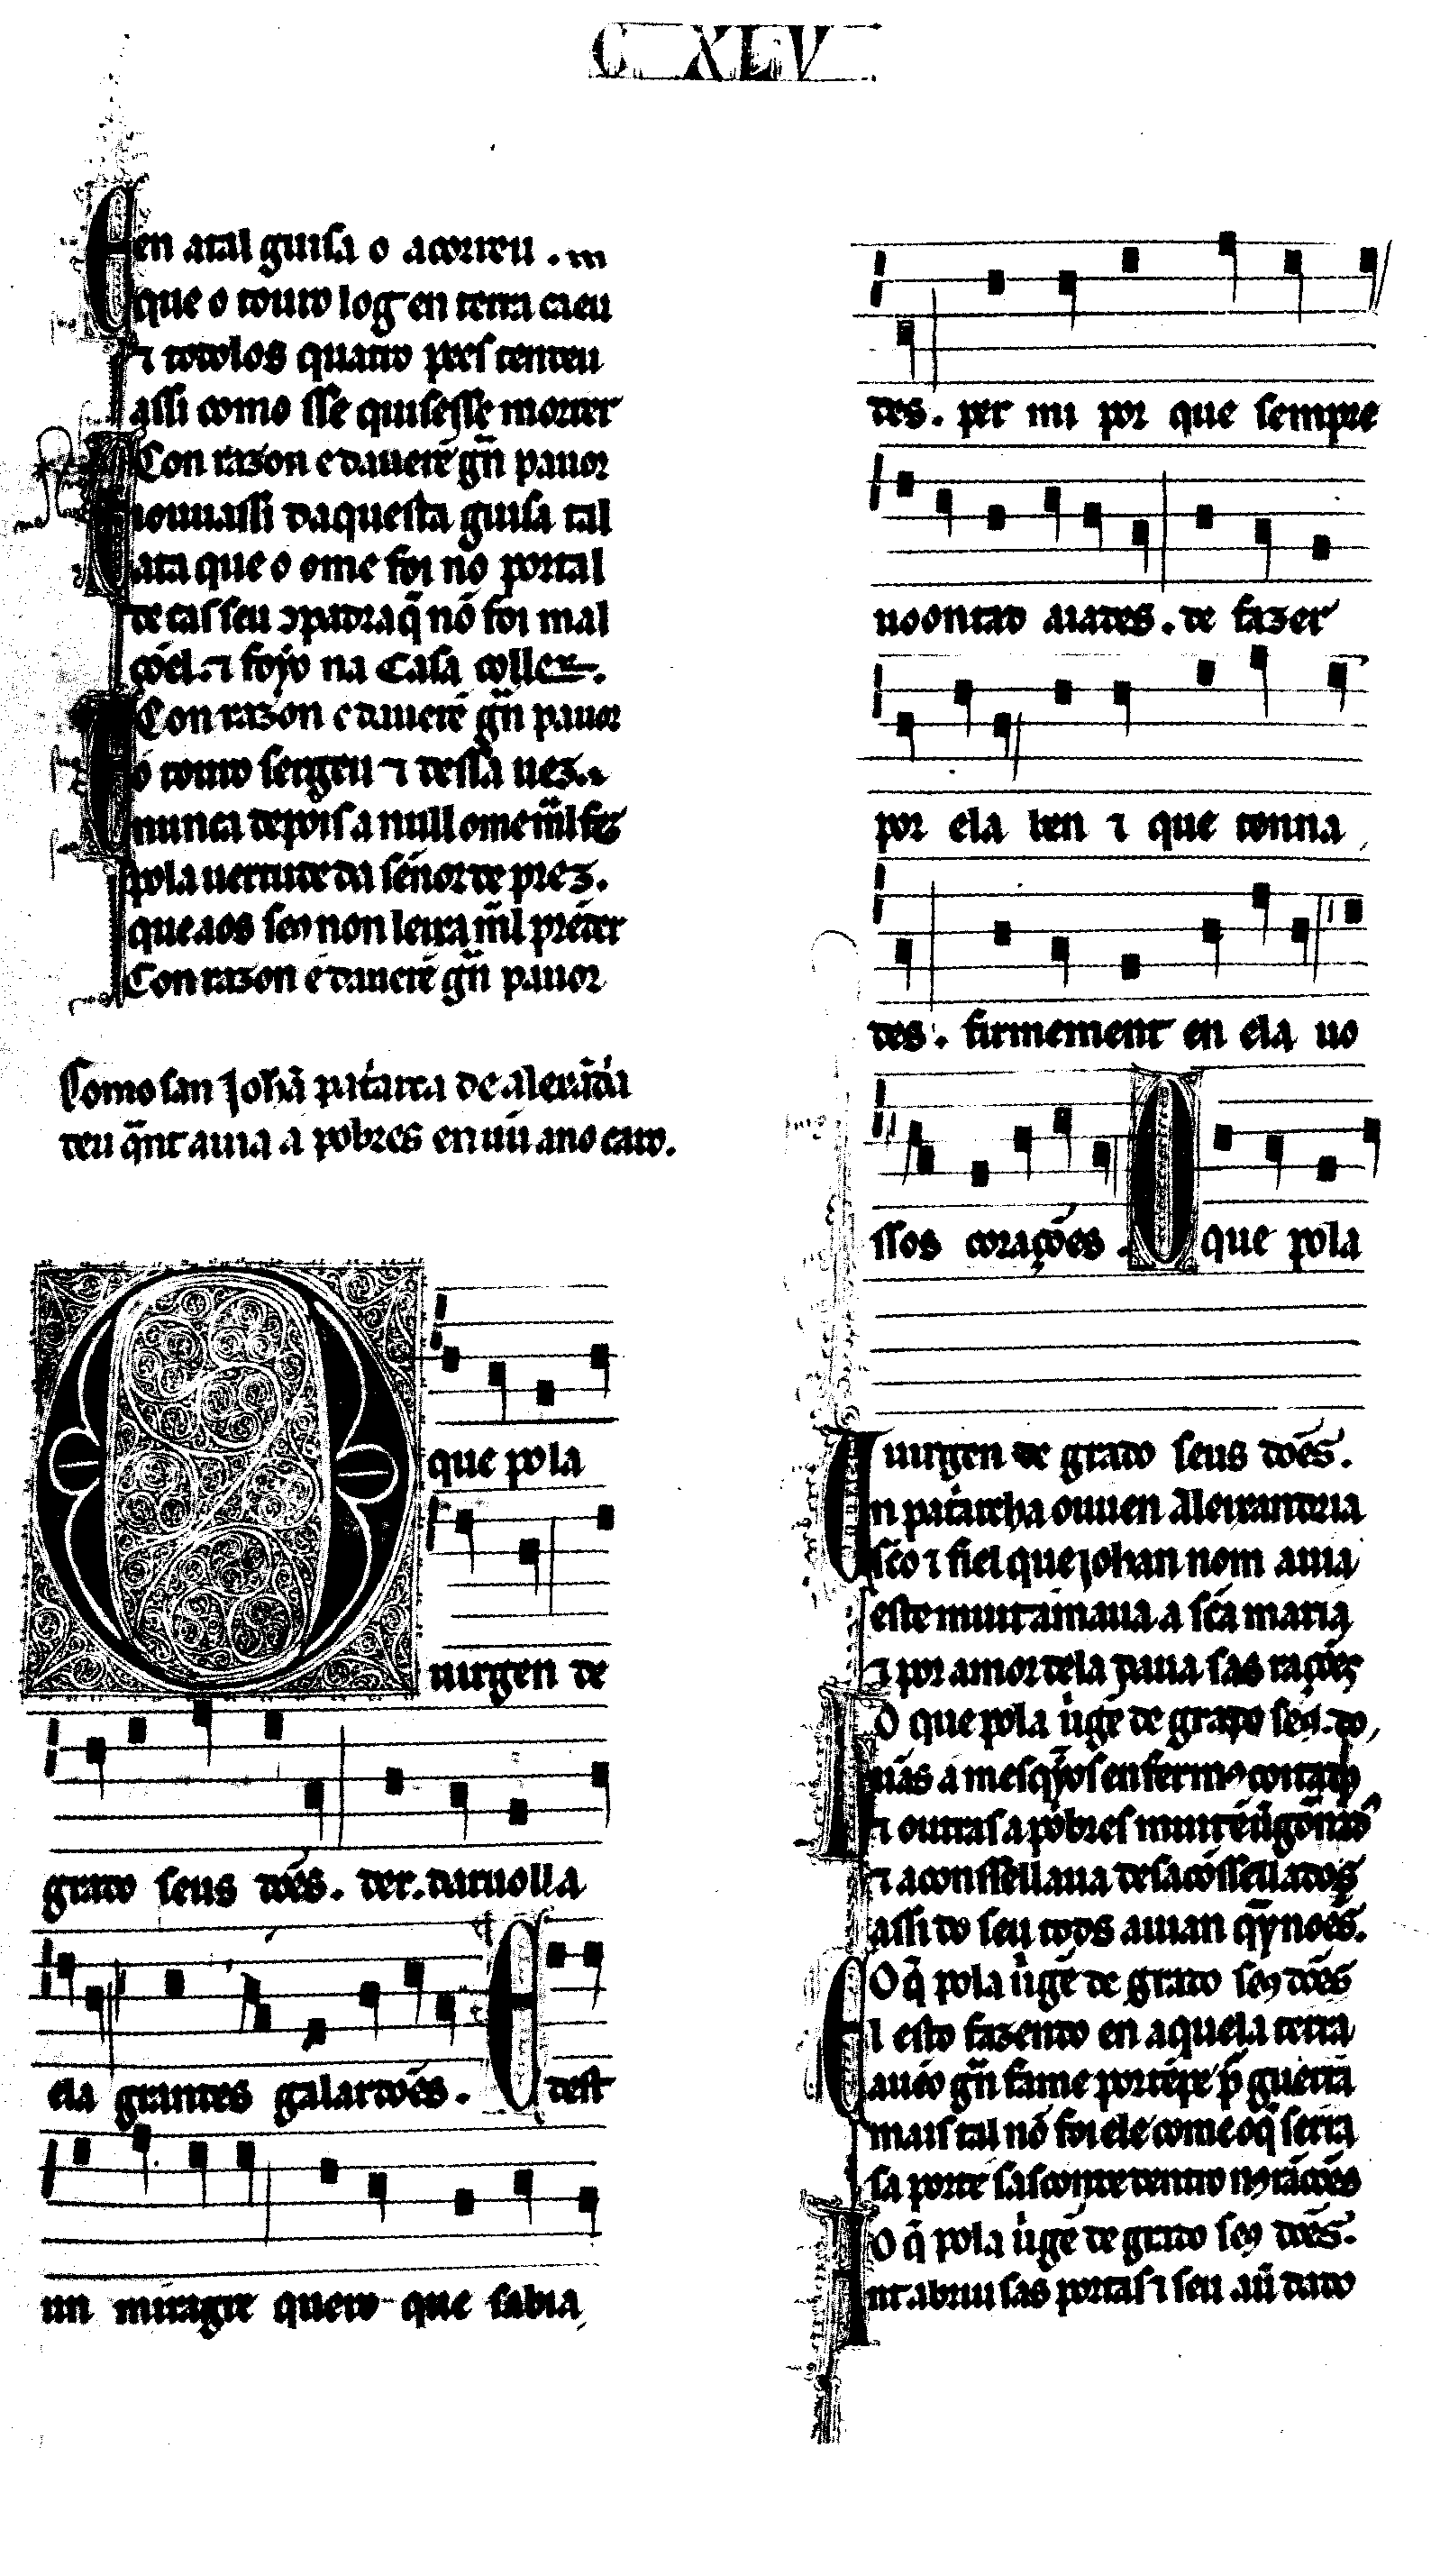 C XLV
E en atal guisa o acorreu. m
que o touro log en terra caeu
⁊ todolos quatro pees tendeu
assi como sse quisesse morrer
Con razon e daueré gñ pauor
iouuassi daquesta guisa tal
ata que o ome foi no portal
de cas seu ↄpadra q̃ nõ foi mal
cõel. ⁊ foyo na Casa coller.
Con razon e dauerẽ gñ pauor
E o touro sergeu ⁊ dessa uez.
nunca depois a null ome m̃l fez
pola uertude da sẽnor de prez.
que aos seꝯ non leixa m̃l prẽder
Con razon é dauerẽ gñ pauor
Como san Johã patarca de alexãdra
deu q̃nt auia a pobres en uũ ano caro.
O que pola
uirgen de
grado seus dões. der. daruolla
ela grandes galardões. E dest
un miragre quero que sabia
des. per mi por que sempre
uoontad aiades. de fazer
por ela ben ⁊ que tonna
des. firmement en ela uo
ssos corações. O que pola
uirgen de grado seus dões.
U n patarcha ouuen Alexandria
sc̃o ⁊ fiel que johan nom auia
este muit amaua a sc̃a maria
⁊ por amor dela daua sas rações
O que pola uirgẽ de grado seꝯ. do
uãs a mesqỹos enfermꝯ coitadꝯ
⁊ outras a pobres muit ẽũgõnados
⁊ aconssellaua desacõssellados
assi do seu todos auian q̃ynoẽs.
O q̃ pola uirgẽ de grado seꝯ dões
E l esto fazendo en aquela terra
auẽo gñ fame por tẽpe p̃ guerra
mais tal nõ foi ele come o q̃ serra
sa porte sascomde dentro nꝯ rãcões
O q̃ pola uirgẽ de grado seꝯ dões.
A nt abriu sas portas ⁊ seu aũ dado